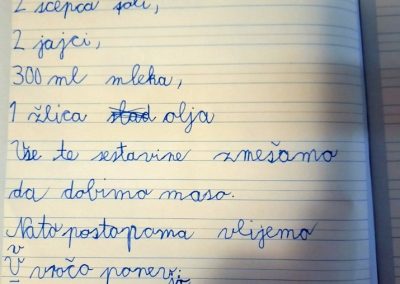 2 ščepca soli,
2 jajci,
300 ml mleka,
1 žlica olja
Vse te sestavine zmešamo
da dobimo maso.
Nato postopoma vlijemo
V vročo ponev